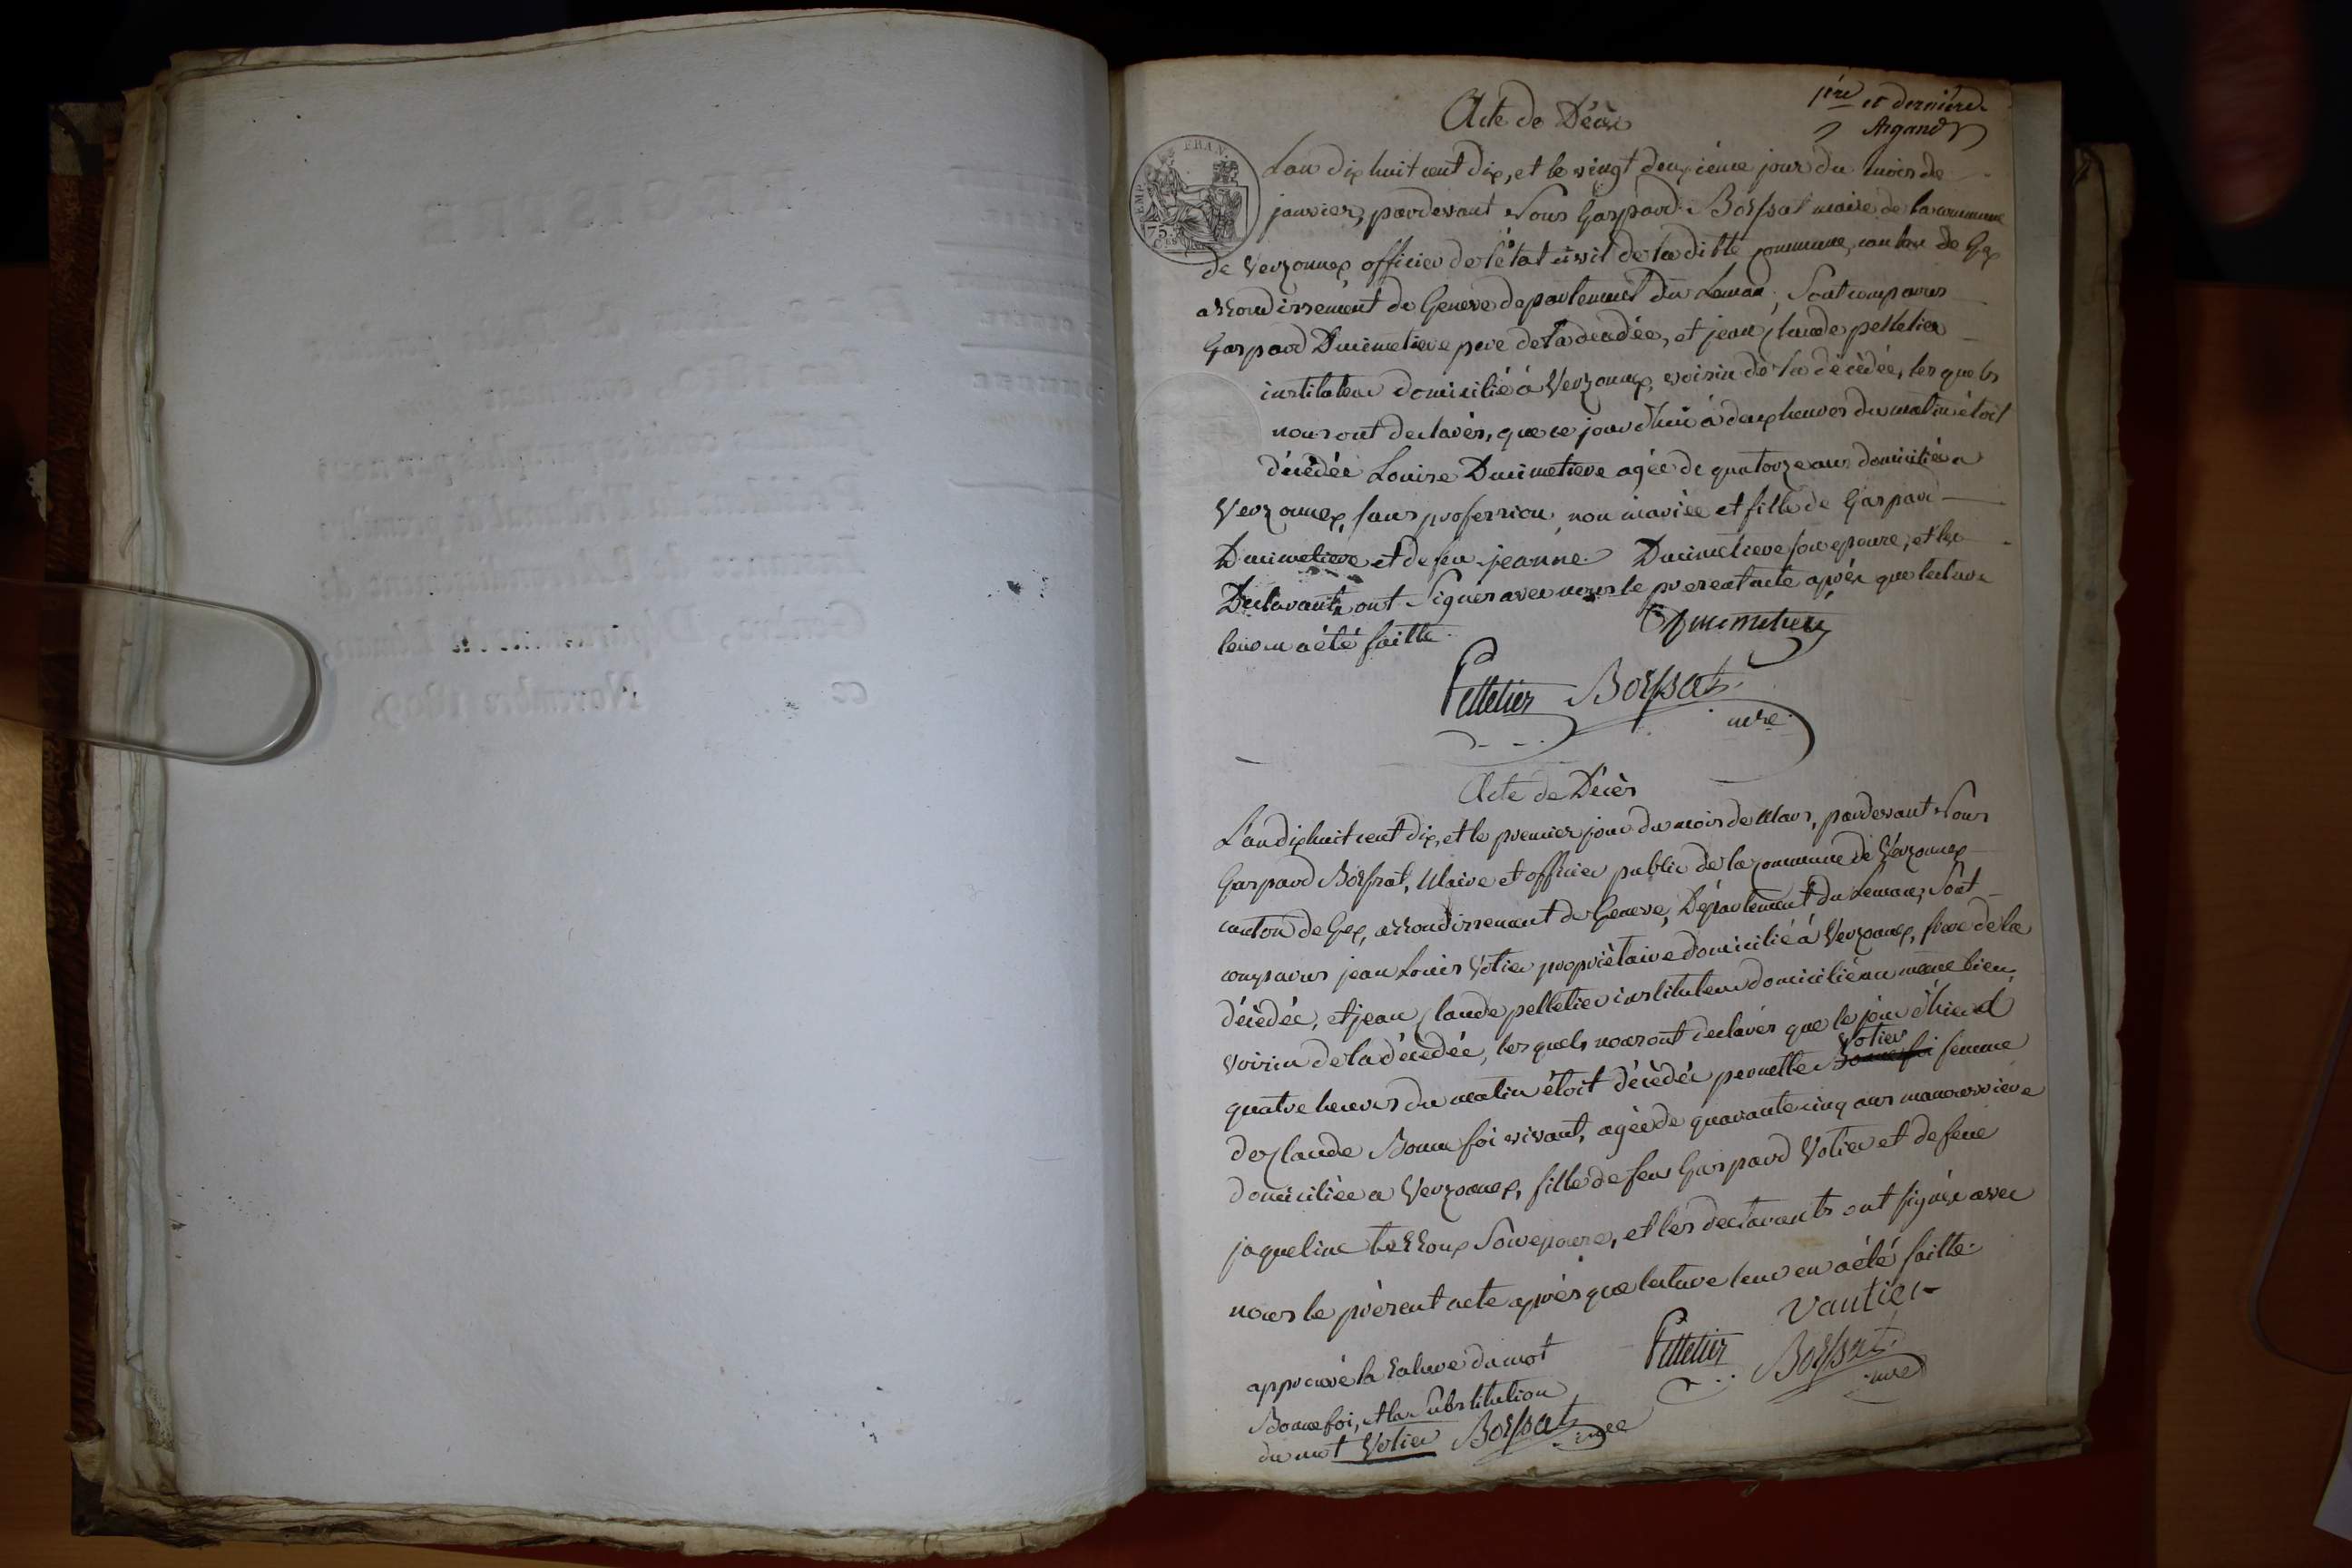 1ère et dernière
Argand
Acte de Décès
EMP. FRAN.
75.
CES
L'an dix huit cent dix, et le vingt deuxième jour du mois de
janvier, pardevant Nous Gaspard Boissat maire de la commune
de Verzonnex officier de l'état civil de la ditte commune, canton de Gex
arrondissement de Geneve departement du Leman, Sont comparus
Gaspard Ducimetiere pere de la decedée, et jean claude pelletier
instituteur domicilié à Verzonnex, voisin de la décédée, les quels
nous ont declarés, que ce jour d'hui à deux heures du matin étoit
décédée Louise Ducimetiere agée de quatorze ans domiciliée a
Verzonnex, sans profession, non mariée et fille de Gaspard
Ducimetiere et de feu jeanne Ducimetiere son epouse, et les
Declarants ont signés avec nous le present acte après que lecture
leur en a été faitte.
Ducimetiere
Pelletier Boissat
mre
Acte de Décès
L'an dix huit cent dix, et le premier jour du mois de Mars, pardevant Nous
Gaspard Boissat, Maire et officier public de la commune de Verzonnex
canton de Gex, arrondissement de Geneve, Département du Leman, Sont
comparus jean Louis Votier propriètaire domicilié à Verzonnex, frere de la
décédée, et jean claude pelletier instituteur domicilié au même lieu,
voisin de la décédée, les quels nous ont declarés que le jour d'hier à
Votier
quatre heures du matin étoit décédée pernette Bonnefoi femme
de claude Bonnefoi vivant, agée de quarante cinq ans manouvriere
domiciliée a Verzonnex, fille de feu Gaspard Votier et de feue
jaqueline terroux son epouse, et les declarants ont signés avec
nous le présent acte après que lecture leur en a été faitte.
Vautier
Pelletier Boissat
mre
approuvé la rature du mot
Bonnefoi, et la substitution
du mot Votier Boissat
mre